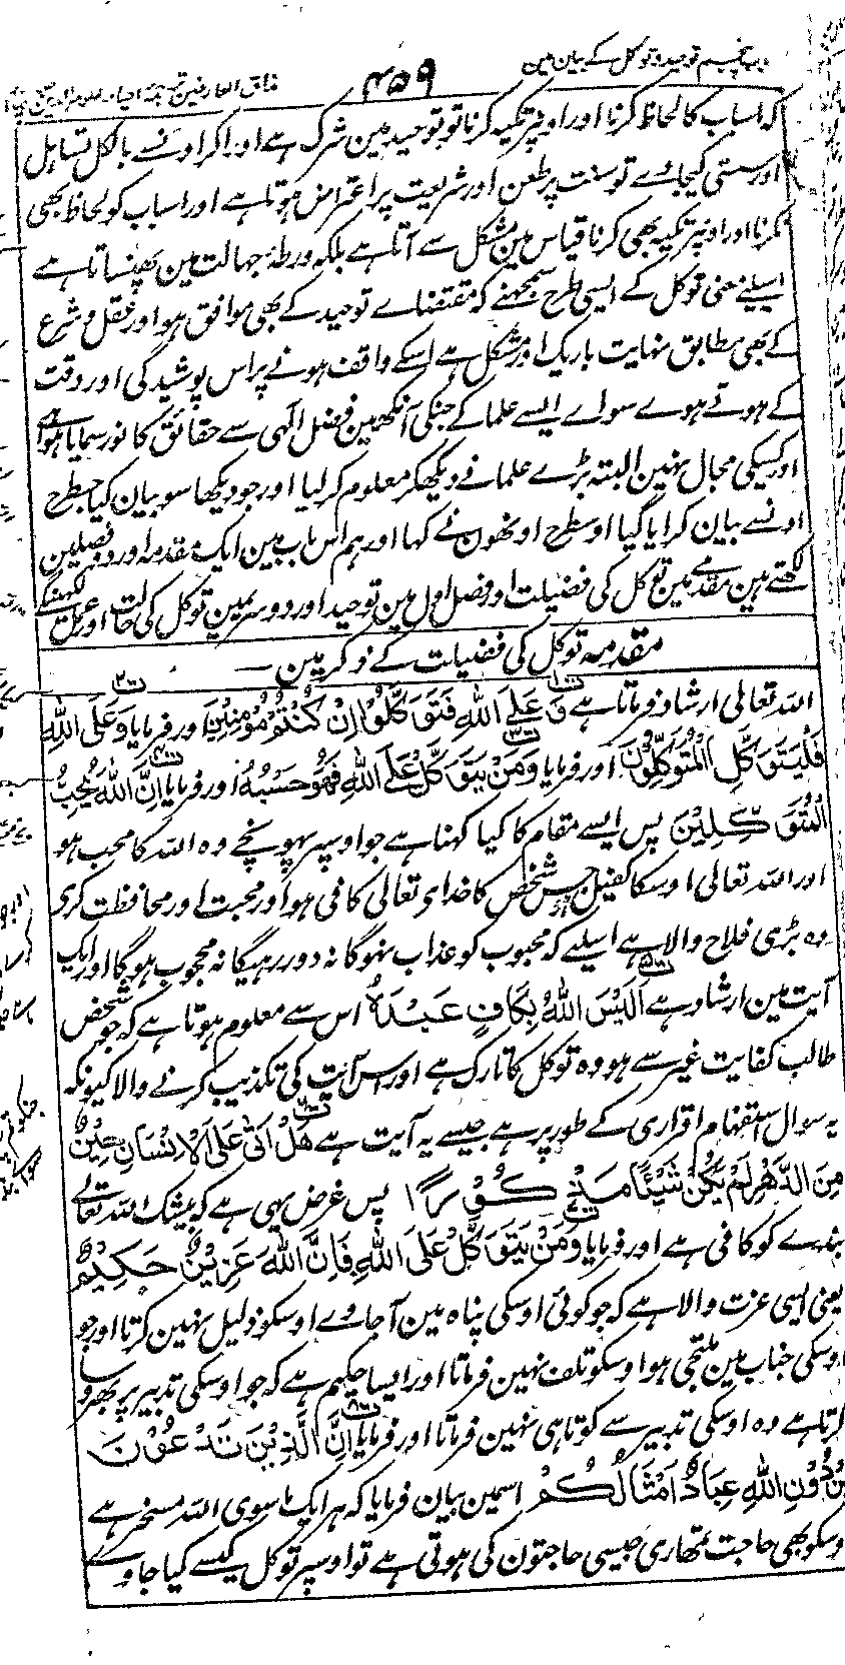 باب پنجم توحید و توکل کے بیان مین
۴۵۹
مذاق العارفین ترجمہ احیاء علوم الدین
کہ اسباب کا لحاظ کرنا اور اونپر تکیہ کرنا تو توحید مین شرک ہے اور اگر اونسے بالکل تساہل
اور سستی کیجاوے تو سنت پر طعن اور شریعت پر اعتراض ہوتا ہے اور اسباب کو لحاظ بھی
نکرنا اور اونپر تکیہ بھی کرنا قیاس مین مشکل سے آتا ہے بلکہ ورطۂ جہالت مین پھنساتا ہے
اسلیے معنی توکل کے ایسی طرح سمجھنے کہ مقتضاے توحید کے بھی موافق ہو اور عقل و شرع
کے بھی مطابق نہایت باریک اور مشکل ہے اسکے واقف ہونے پر اس پوشیدگی اور دقت
کے ہوتے ہوے سواے ایسے علما کے جنکی آنکھ مین فضل الٰہی سے حقائق کا نور سمایا ہوا ہے
اور کسیکی مجال نہین البتہ بڑے علما نے دیکھکر معلوم کر لیا اور جو دیکھا سو بیان کیا جسطرح
اونسے بیان کرایا گیا اوسطرح اونھون نے کہا اور ہم اس باب مین ایک مقدمہ اور دو فصلین
لکھتے ہین مقدمے مین توکل کی فضیلت اور فصل اول مین توحید اور دوسریمین توکل کی حالت اور عمل لکھینگے
مقدمہ توکل کی فضیلت کے ذکر مین ـــ
اللہ تعالی ارشاد فرماتا ہے وَعَلَى اللهِ فَتَوَكَّلُوْا اِنْ كُنْتُمْ مُؤْمِنِيْنَ اور فرمایا وَعَلَى اللهِ
فَلْيَتَوَكَّلِ الْمُتَوَكِّلُوْنَ اور فرمایا وَمَنْ يَتَوَكَّلْ عَلَى اللهِ فَهُوَ حَسْبُهُ اور فرمایا اِنَّ اللهَ يُحِبُّ
الْمُتَوَكِّلِيْنَ پس ایسے مقام کا کیا کہنا ہے جو اوسپر پہونچے وہ اللہ کا محب ہو
اور اللہ تعالی اوسکا کفیل ہو جس شخص کا خداے تعالی کافی ہو اور محبت اور محافظت کرے
وہ بڑی فلاح والا ہے اسلیے کہ محبوب کو عذاب نہوگا نہ دور رہیگا نہ محجوب ہوگا اور ایک
آیت مین ارشاد ہے اَلَيْسَ اللهُ بِكَافٍ عَبْدَهُ اس سے معلوم ہوتا ہے کہ جو شخص
طالب کفایت غیر سے ہو وہ توکل کا تارک ہے اور اس آیت کی تکذیب کرنے والا کیونکہ
یہ سوال استفہام اقراری کے طور پر ہے جیسے یہ آیت ہے هَلْ اَتٰى عَلَى الْاِنْسَانِ حِيْنٌ
مِنَ الدَّهْرِ لَمْ يَكُنْ شَيْئًا مَذْكُوْرًا پس غرض یہی ہے کہ بیشک اللہ تعالے
بندے کو کافی ہے اور فرمایا وَمَنْ يَتَوَكَّلْ عَلَى اللهِ فَاِنَّ اللهَ عَزِيْزٌ حَكِيْمٌ
یعنی ایسی عزت والا ہے کہ جو کوئی اوسکی پناہ مین آجاوے اوسکو ذلیل نہین کرتا اور جو
اوسکی جناب مین ملتجی ہو اوسکو تلف نہین فرماتا اور ایسا حکیم ہے کہ جو اوسکی تدبیر پر بھروسا
کرتا ہے وہ اوسکی تدبیر سے کوتاہی نہین فرماتا اور فرمایا اِنَّ الَّذِيْنَ تَدْعُوْنَ
مِنْ دُوْنِ اللهِ عِبَادٌ اَمْثَالُكُمْ اسمین بیان فرمایا کہ ہر ایک ما سوی اللہ مسخر ہے
اوسکو بھی حاجت تمھاری جیسی حاجتون کی ہوتی ہے تو اوسپر توکل کیسے کیا جاوے